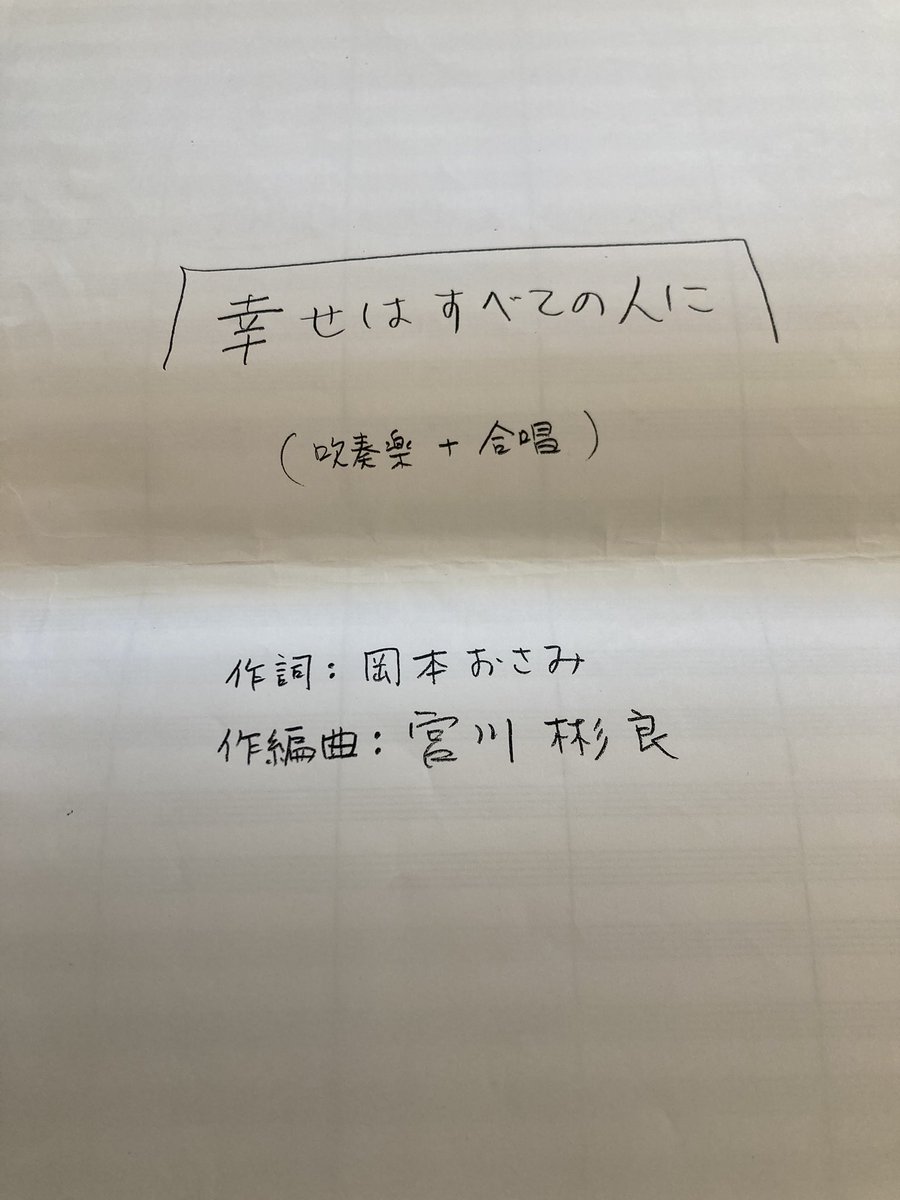 幸せはすべての人に
(吹奏楽+合唱)
作詞:岡本おさみ
作編曲:宮川彬良